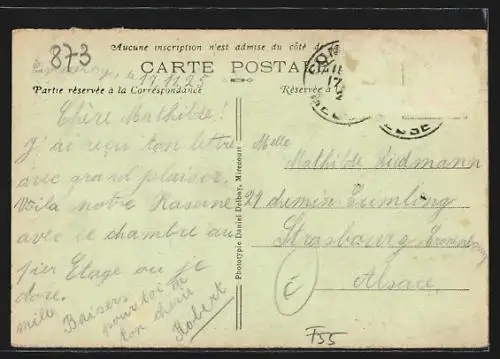 873
Aucune inscription n'est admise du côté de
CARTE POSTALE
le 17.11.25
Partie réservée à la Correspondance
Réservée à
Chère Mathilde!
J'ai reçu ton lettre
avec grand plaisir.
Voila notre Kaserne
avec ce chambre au
pier Etage ou je
dore.
mille Baisers
pour toi de
ton chérie
Robert
Phototypie Daniel Delbay, Mirecourt
Melle
Mathilde Wiedmann
29 chemin Eumling
Strasbourg Cronenbourg
Alsace
F55